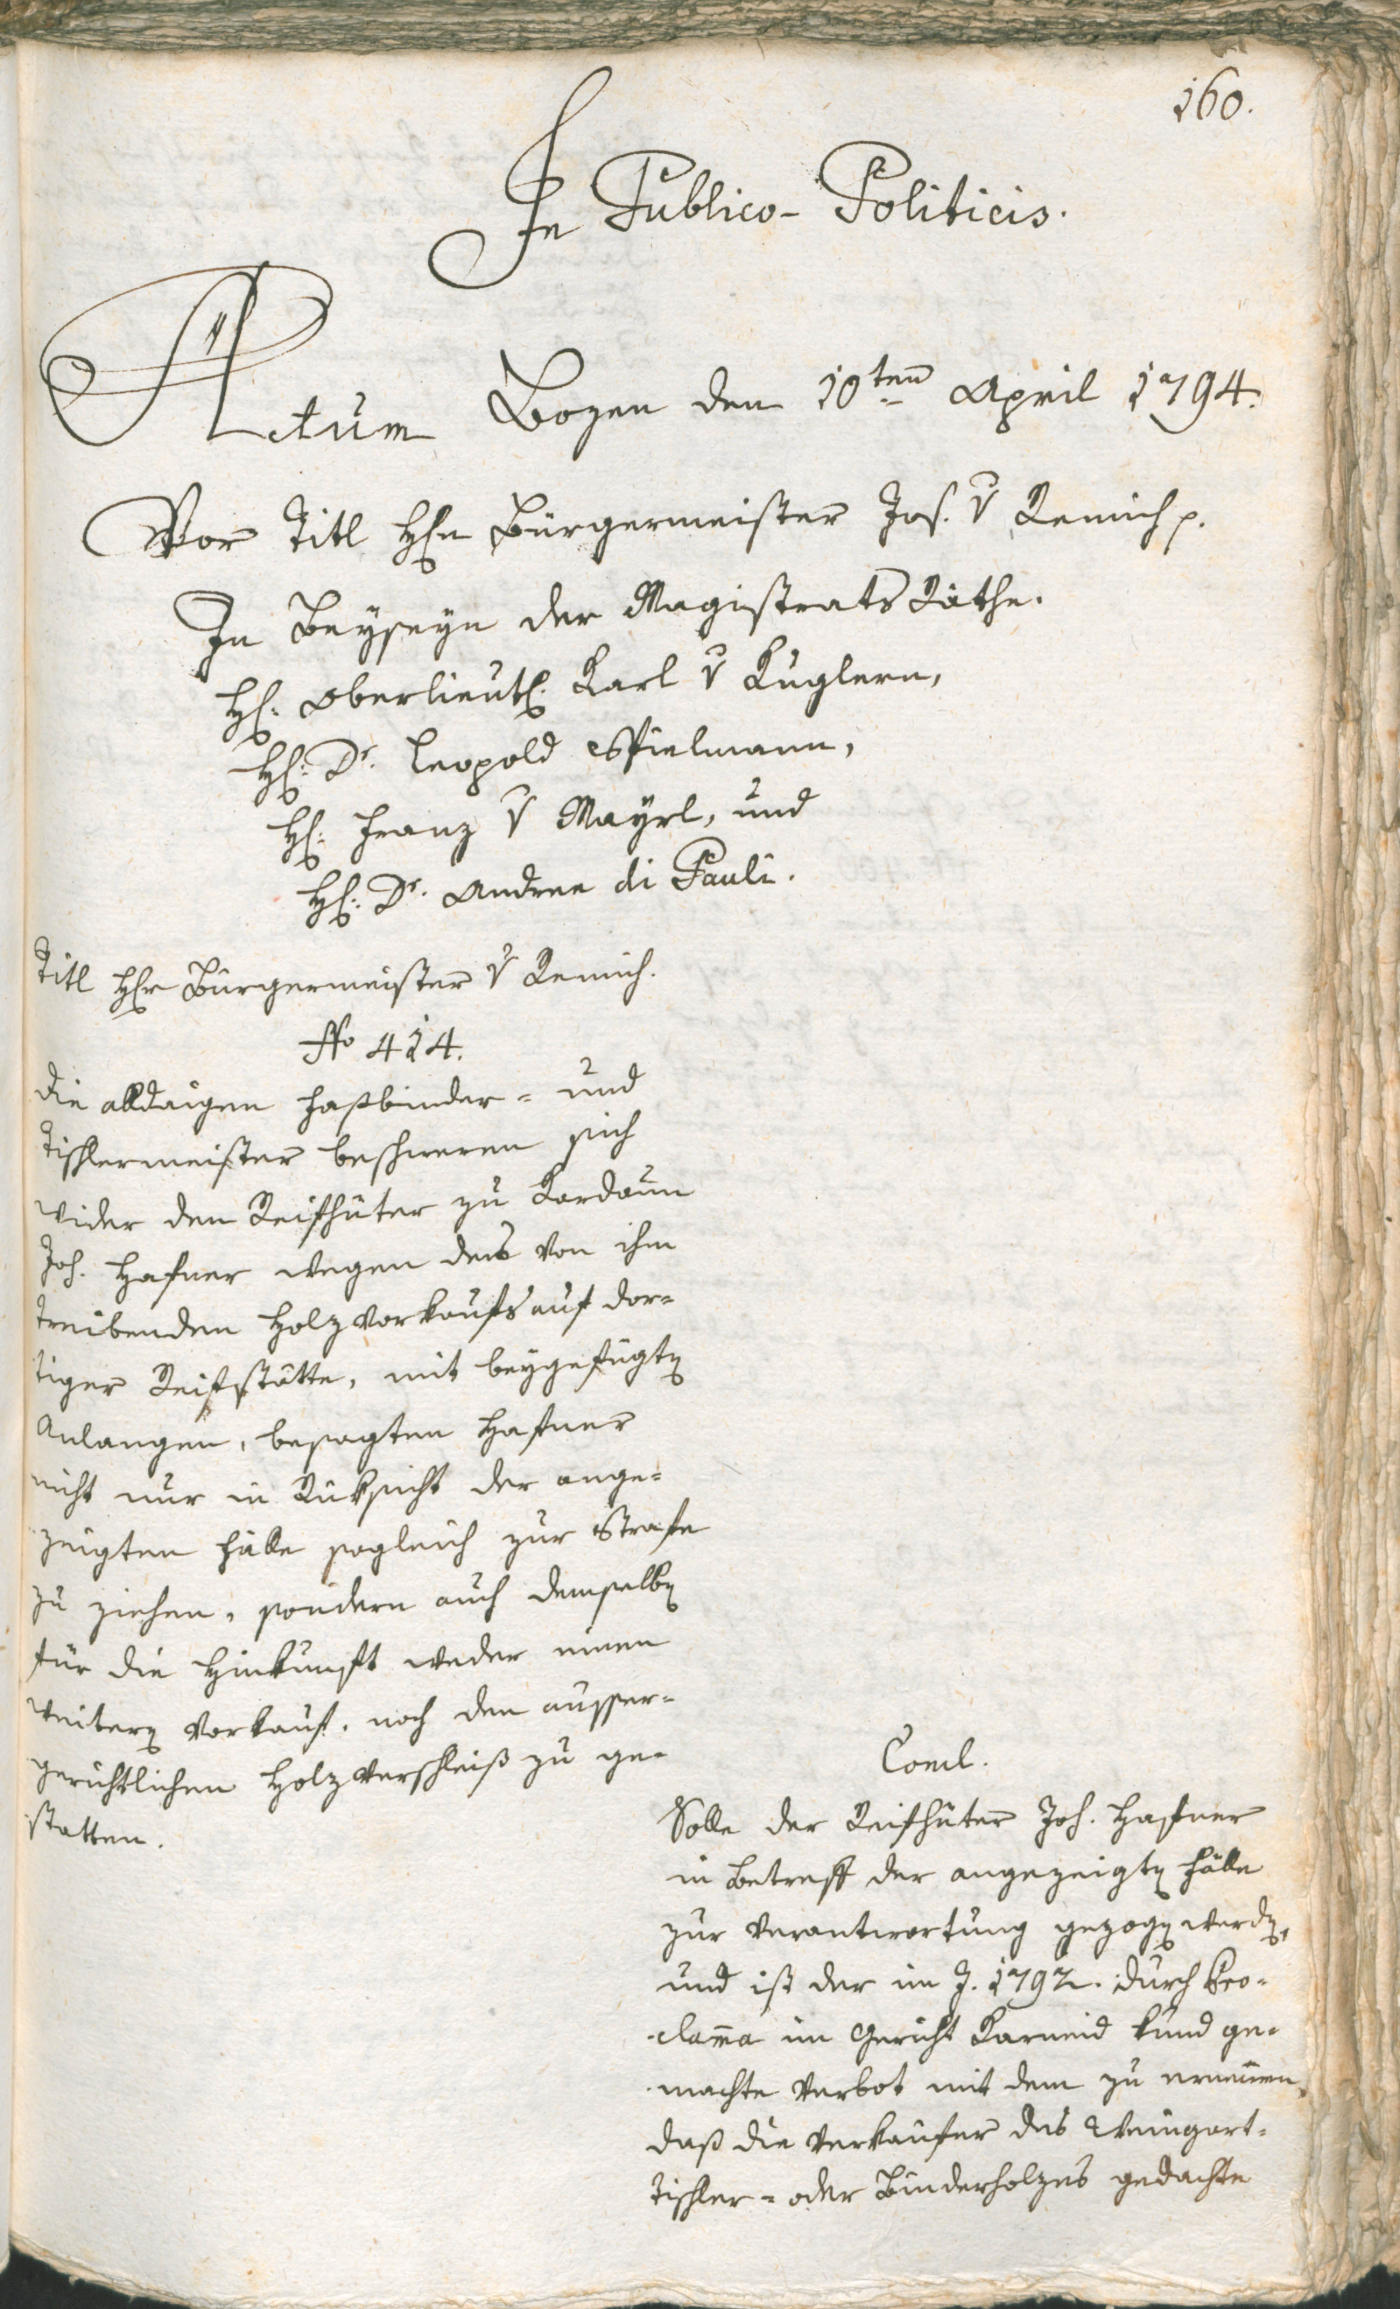 160.
In Publico-Politicis.
Actum Bozen den 10ten April 1794.
Vor Titl Hℓn Bürgermeister Jos. v Remich p.
In Beyseyn der Magistrats Räthe.
Hℓ: Oberlieutℓ Karl v Kuglern,
Hℓ: Dr. Leopold Spielmann,
Hℓ: Franz v Mayrl, und
Hℓ: Dr. Andree di Pauli.
Titl Hℓr Bürgermeister v Remich.
No 414.
Die alldaigen Faßbinder- und
Tischlermeister beschweren sich
wider den Reifhüter zu Kardaun
Joh. Hafner wegen des von ihm
treibenden Holzvorkaufs auf dor-
tiger Reifstätte, mit beygefügten
Anlangen, besagten Hafner
nicht nur in Rüksicht der ange-
zeigten Fälle sogleich zur Strafe
zu ziehen, sondern auch demselben
für die Hinkunft weder einen
weitern Vorkauf, noch den ausser-
gerichtlichen Holzverschleiß zu ge-
statten.
Concl.
Solle der Reifhüter Joh. Hafner
in Betreff der angezeigten Fälle
zur Verantwortung gezogen werden,
und ist der im J. 1792. durch Pro-
clama im Gericht Karneid kund ge-
machte Verbot mit dem zu erneuern,
daß die Verkäufer des Weingart-
Tischler- oder Binderholzes gedachte